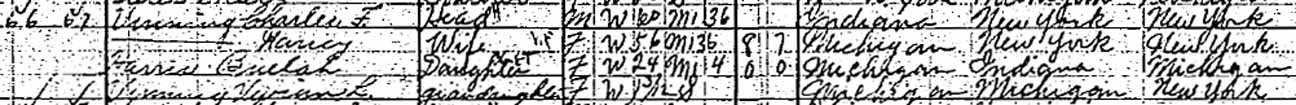 66 67 Vinning Charles F. Head M W 60 M1 36 Indiana New York New York
Nancy Wife F W 56 M1 36 8 7 Michigan New York New York
Harris Buelah Daughter F W 24 M1 4 0 0 Michigan Indiana Michigan
Vinning Vivian L. Granddaughter F W S Michigan Michigan New York